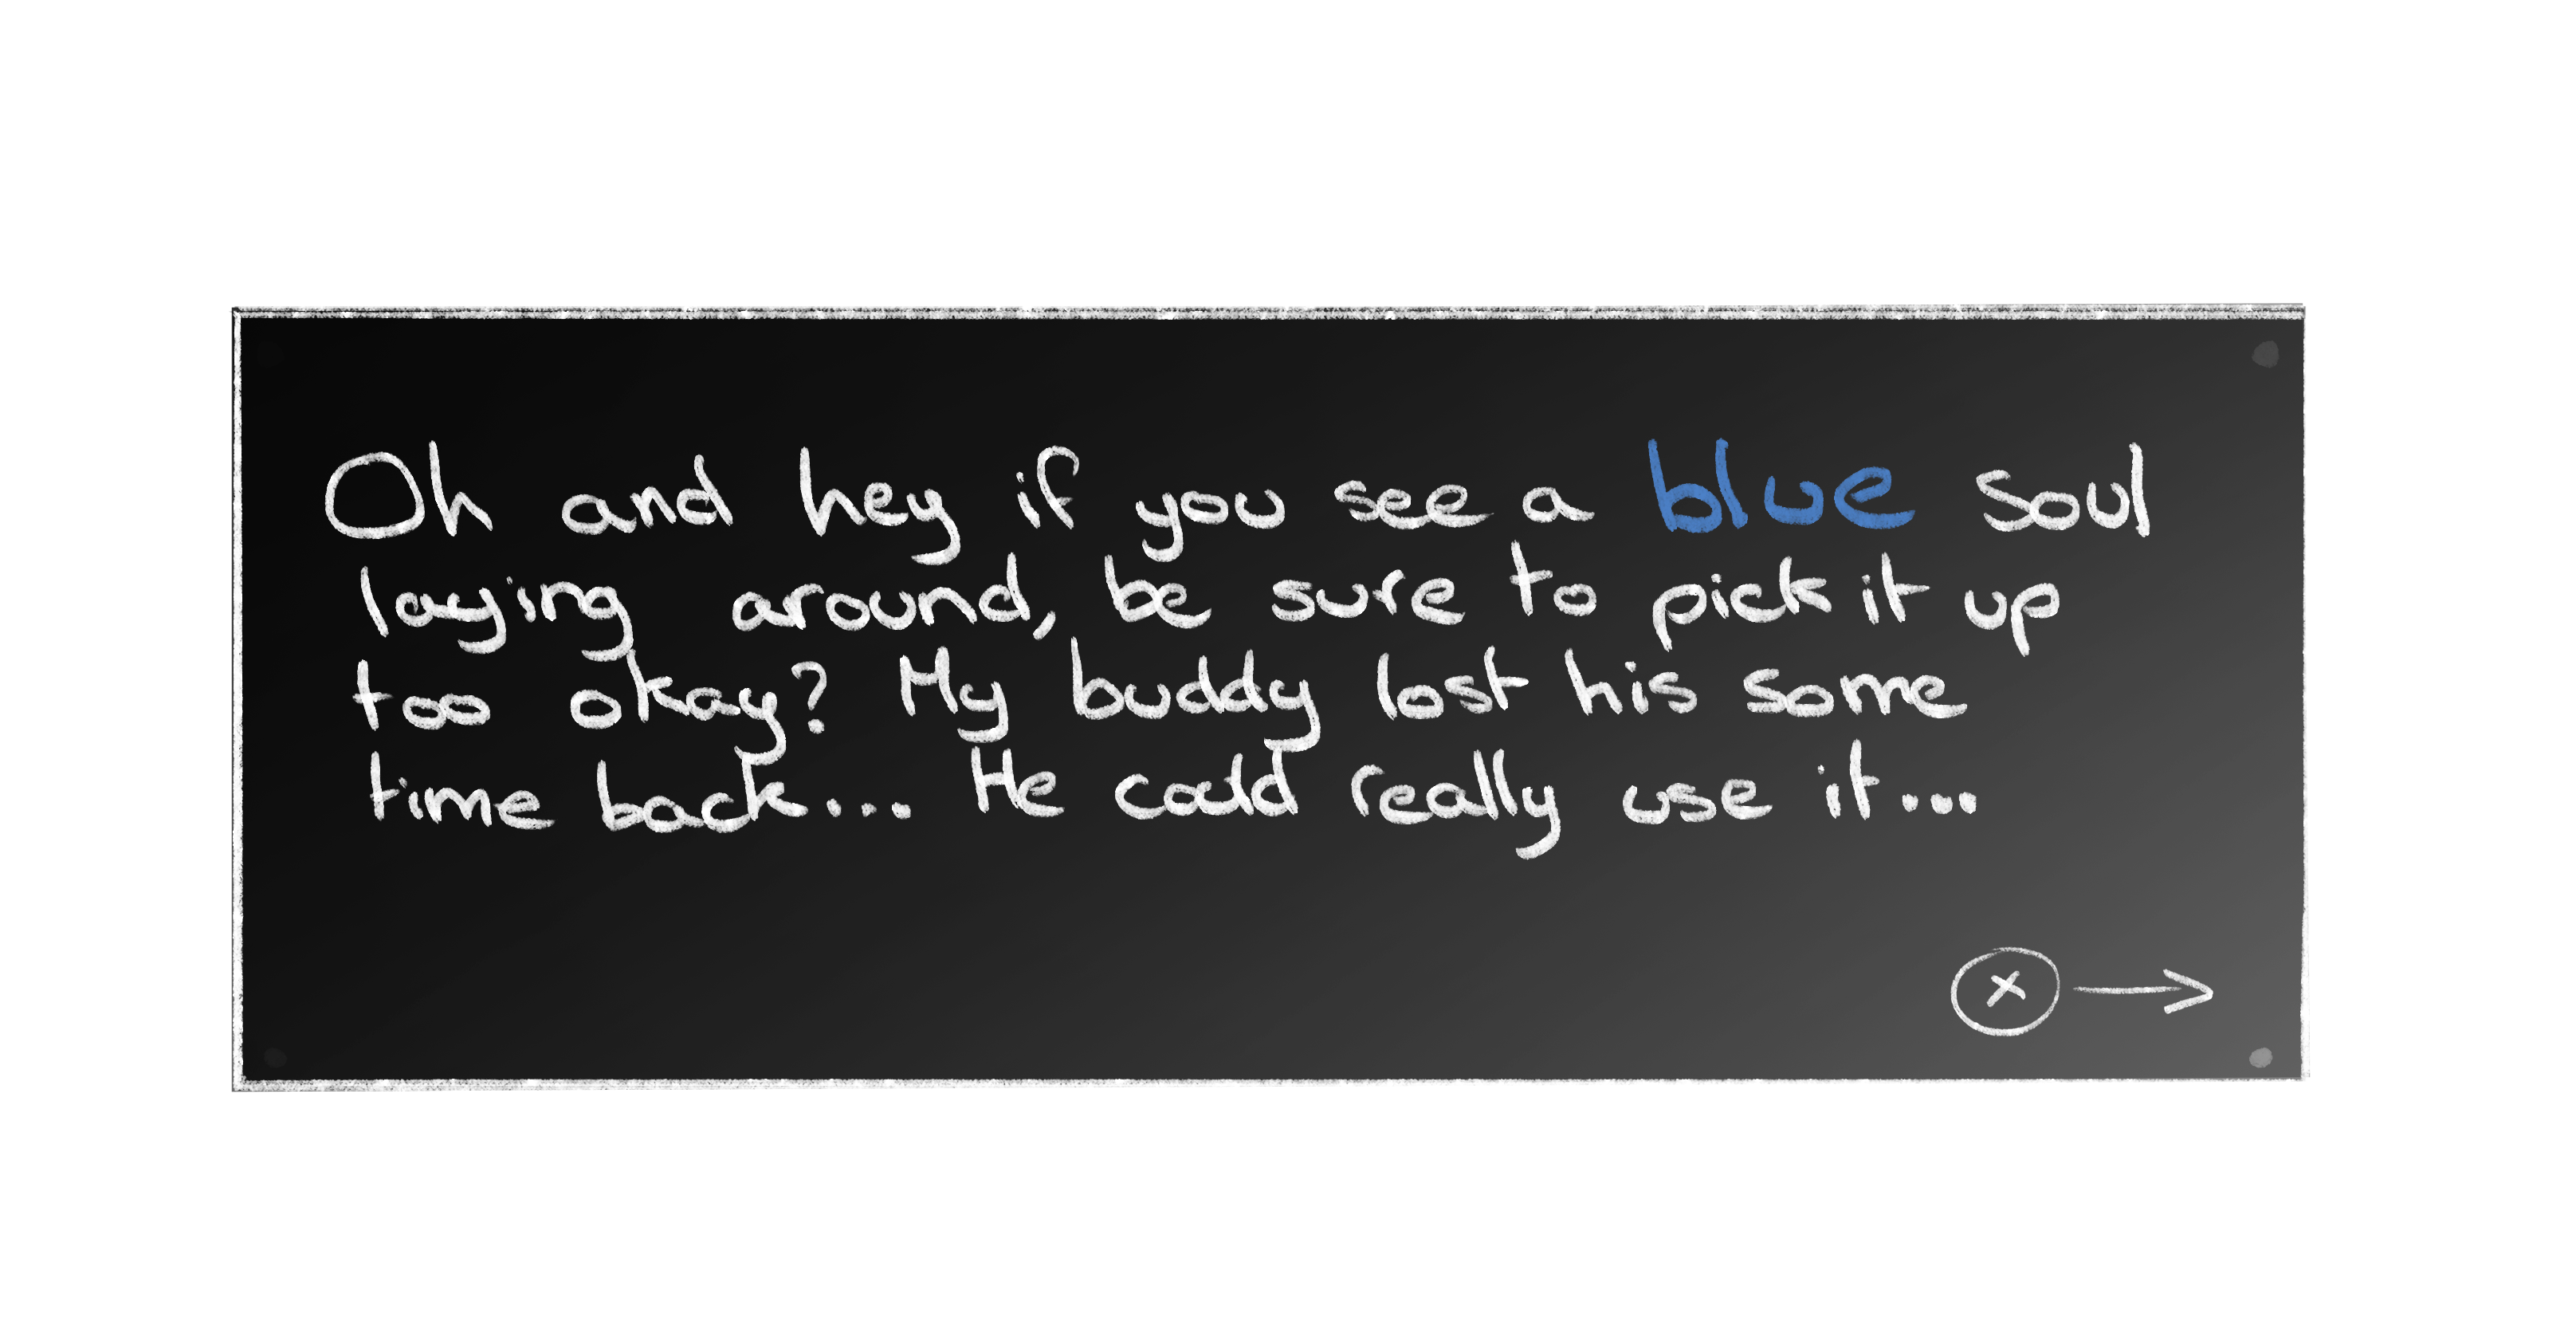 Oh and hey if you see a blue soul
laying around, be sure to pick it up
too okay? My buddy lost his some
time back... He could really use it...
x